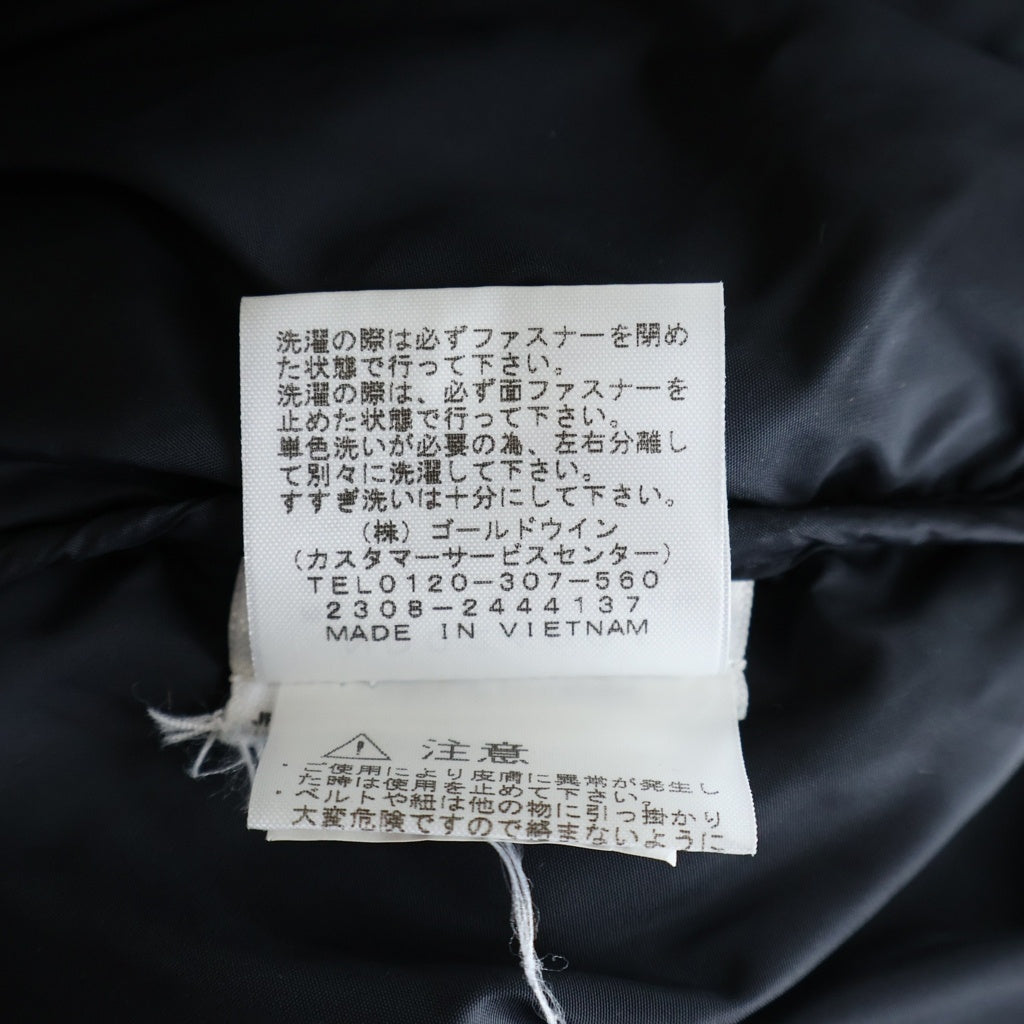 洗濯の際は必ずファスナーを閉め
た状態で行って下さい。
洗濯の際は、必ず面ファスナーを
止めた状態で行って下さい。
単色洗いが必要の為、左右分離し
て別々に洗濯して下さい。
すすぎ洗いは十分にして下さい。
(株)ゴールドウイン
(カスタマーサービスセンター)
TEL0120-307-560
2308-2444137
MADE IN VIETNAM
注意
・ご使用により皮膚に異常が発生し
た時は使用を止めて下さい。
・ベルトや紐は他の物に引っ掛かり
大変危険ですので絡まないように